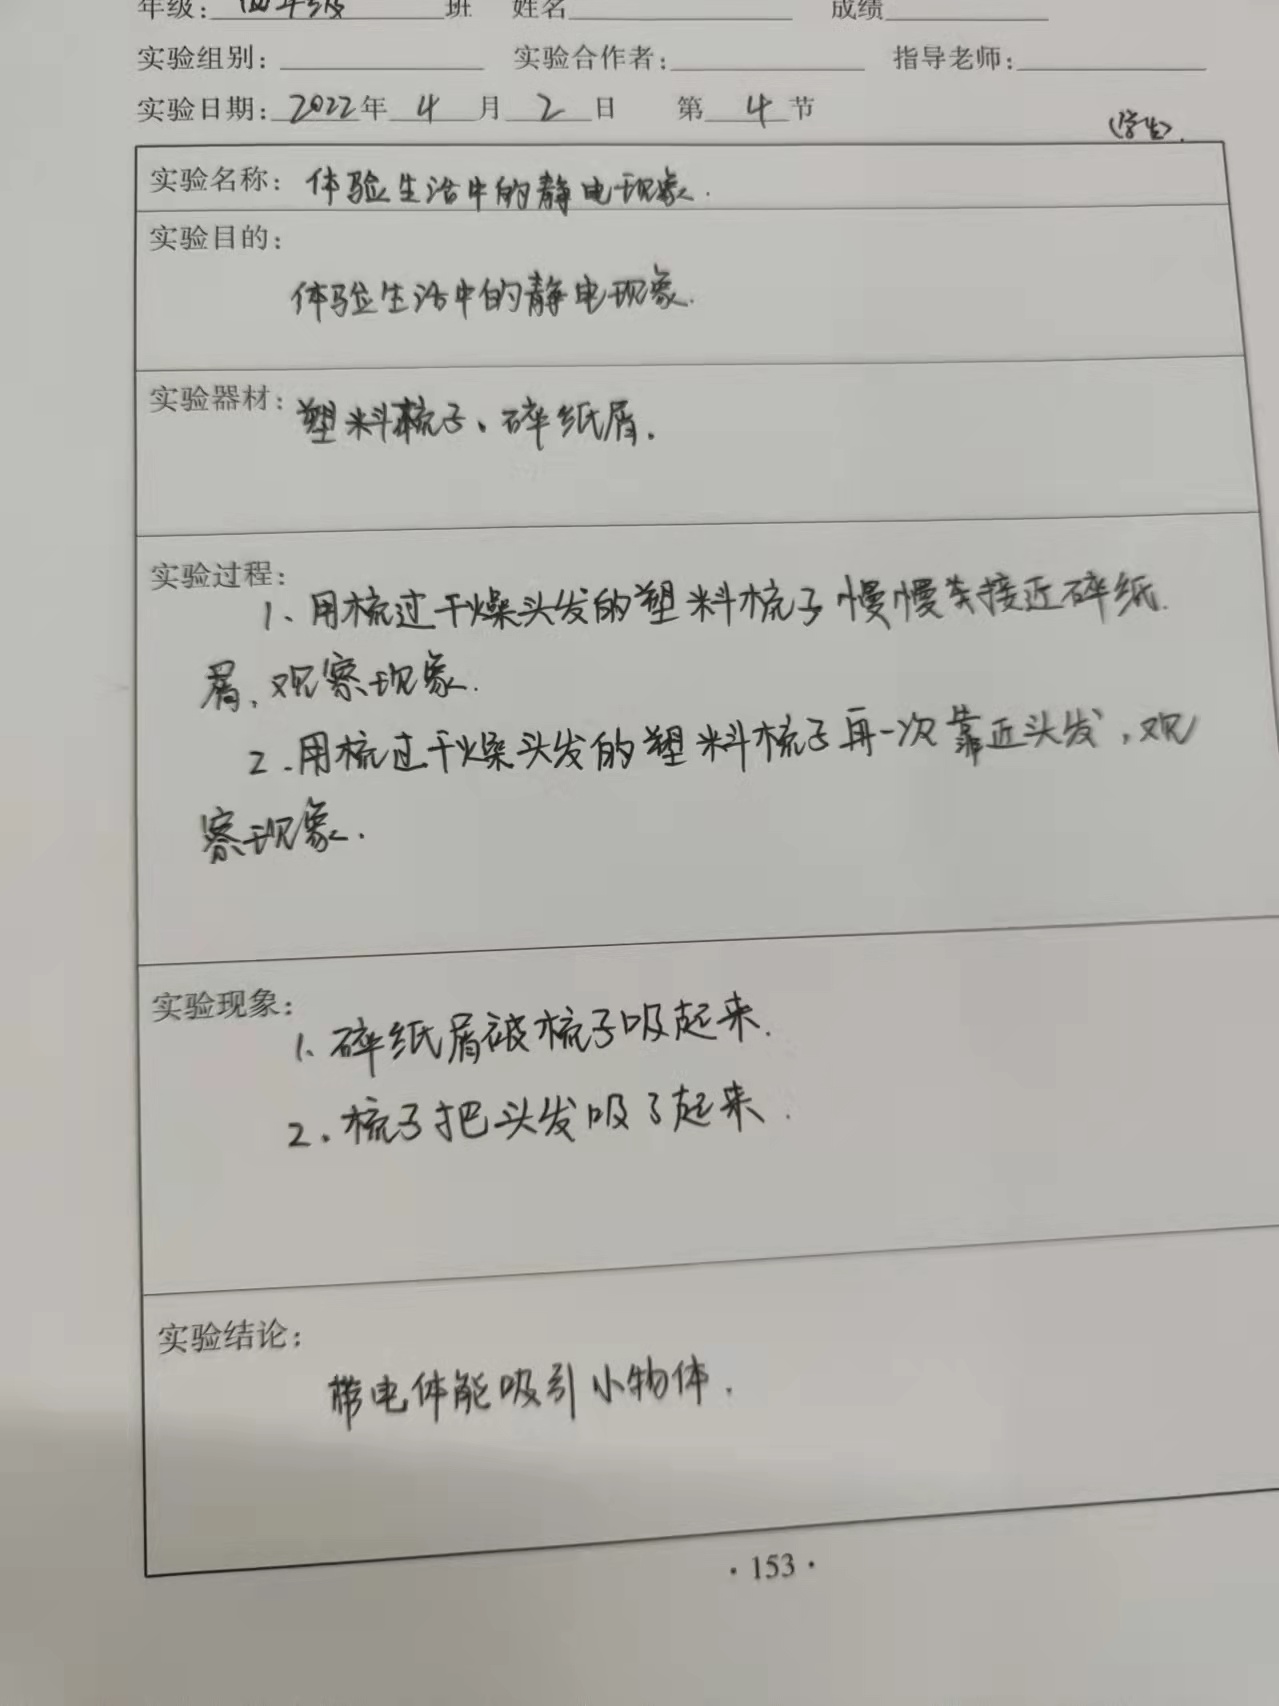 年级：四年级 班 姓名 成绩
实验组别： 实验合作者： 指导老师：
实验日期：2022年 4 月 2 日 第 4 节
(学生).
实验名称：体验生活中的静电现象.
实验目的：
体验生活中的静电现象.
实验器材：塑料梳子、碎纸屑.
实验过程：
1、用梳过干燥头发的塑料梳子慢慢接近碎纸
屑,观察现象.
2.用梳过干燥头发的塑料梳子再一次靠近头发,观
察现象.
实验现象：
1、碎纸屑被梳子吸起来.
2.梳子把头发吸了起来.
实验结论：
带电体能吸引小物体.
·153·